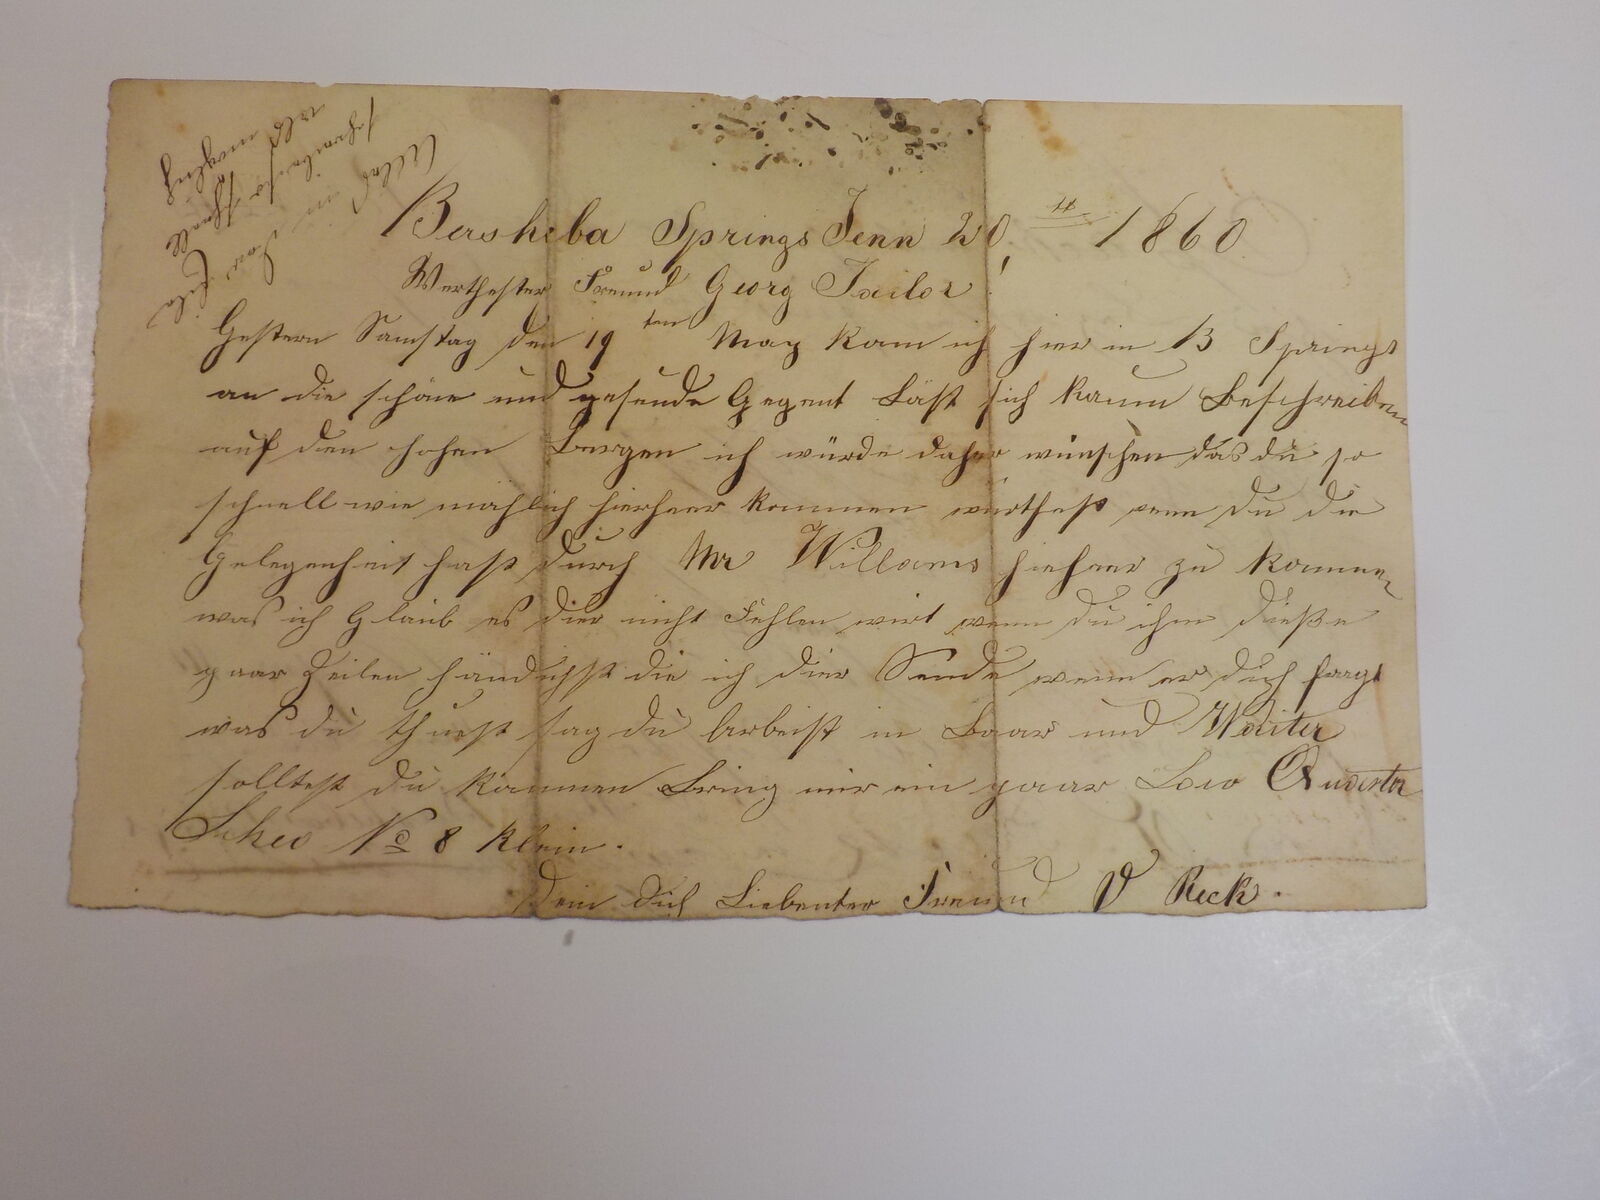 Bersheba Springs Tenn 20, tt 1860.
Werthester Freund Georg Tailor!
Gestern Samstag den 19ten May kam ich hier in B Springs
an die schöne und gesunde Gegent Läst sich kaum Beschreiben
auf den hohen Bergen ich würde daher wünschen das du so
schnell wie möhlich hierheer kommen würthest wenn du die
Gelegenheit hast durch Mr Willams hieheer zu kommen
was ich Glaub es dier nicht Fehlen wirt wenn du ihm dieße
paar Zeilen händichst die ich dier Sende wenn er dich fragt
was du thuest sag du Arbeist in Baar und Waiter
solltest du kommen Bring mir ein paar Low
Schus No 8 klein.
Dein dich Liebenter Freund V Reck.
Alles in
schreibe so schnell
als möglich